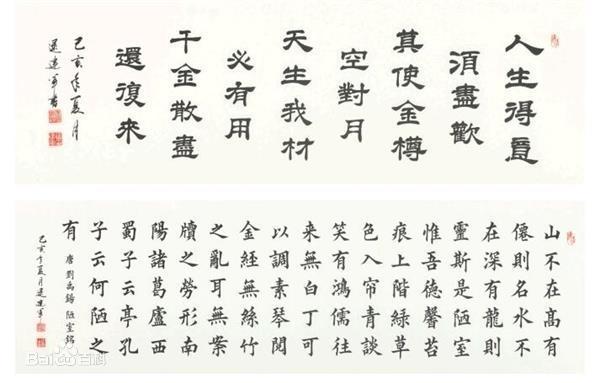 人生得意
湏盡歡
其使金樽
空對月
天生我材
必有用
千金散盡
還復來
己亥年夏月
建軍書
山不在髙有
僊則名水不
在深有龍則
靈斯是陋室
惟吾德馨苔
痕上階緑草
色入帘青談
笑有鴻儒往
来無白丁可
以調素琴閱
金經無絲竹
之亂耳無案
牘之勞形南
陽諸葛廬西
蜀子云亭孔
子云何陋之
有
唐劉禹錫 陋室銘
己亥年夏月 建軍
Bai百科